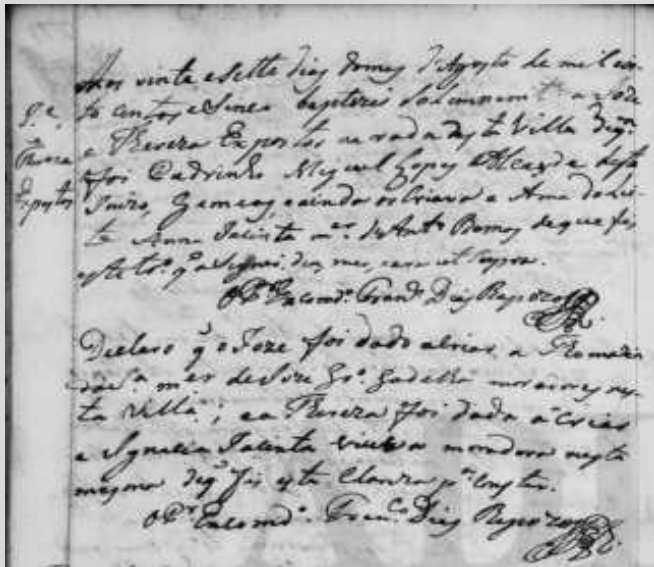 J.e
Thereza
Expostos
Aos vinte e sette dias do mes d'Agosto de mil oi-
to centos e sinco baptizei solemnem.te a Joze
e Thereza Expostos na roda desta Villa de q.
foi Padrinho Miguel Lopes Alcayde deste
Juizo, Gemeos, e ainda os criava a Ama do Lei-
te Anna Jacinta m.er de Ant.o Ramos de que fis
este tr.o q. asignei. dia, mes, era ut supra.
O P.e Encomd.o Fran.co Dias Rapozo
Declaro q. o Joze foi dado a criar a Romana
m.er de Joze Gadelha moradores nes-
ta Villa; e a Thereza foi dada a criar
a Ignacia Jacinta viuva moradora nesta
mesma de q. fis esta clareza p.a constar.
O P.e Encomd.o Fran.co Dias Rapozo